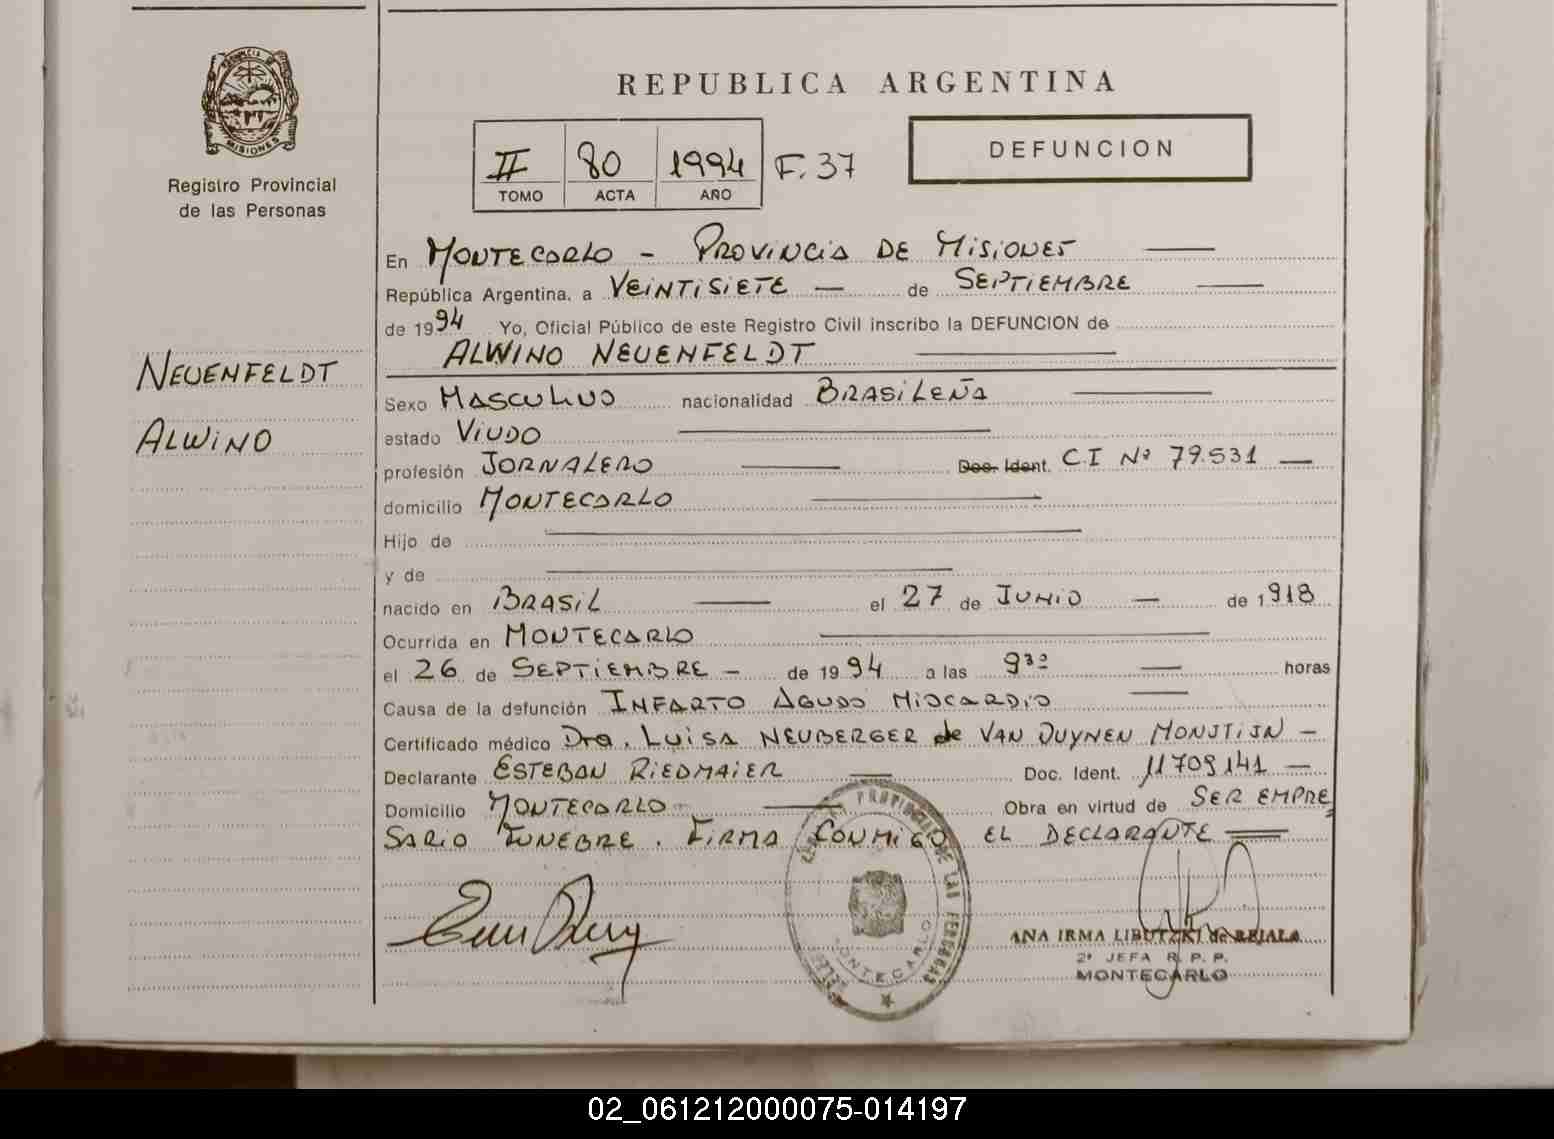 PROVINCIA DE
MISIONES
Registro Provincial
de las Personas
NEUENFELDT
ALWINO
REPUBLICA ARGENTINA
II 80 1994 F. 37
TOMO ACTA AÑO
DEFUNCION
En MONTECARLO - PROVINCIA DE MISIONES
República Argentina, a VEINTISIETE — de SEPTIEMBRE
de 1994 Yo, Oficial Público de este Registro Civil inscribo la DEFUNCION de
ALWINO NEUENFELDT
Sexo MASCULINO nacionalidad BRASILEÑA
estado VIUDO
profesión JORNALERO Doc. Ident. CI Nº 79.531 —
domicilio MONTECARLO
Hijo de
y de
nacido en BRASIL el 27 de JUNIO — de 1918
Ocurrida en MONTECARLO
el 26 de SEPTIEMBRE - de 1994 a las 9³⁰ horas
Causa de la defunción INFARTO AGUDO MIOCARDIO
Certificado médico Dra. LUISA NEUBERGER de VAN DUYNEN MONSTIJN -
Declarante ESTEBAN RIEDMAIER Doc. Ident. 11709141 —
Domicilio MONTECARLO Obra en virtud de SER EMPRE
SARIO FUNEBRE. FIRMA CONMIGO EL DECLARANTE
PROVINCIAL DE LAS PERSONAS
MONTECARLO
ANA IRMA LIBUTZKI de REJALA
2ª JEFA R. P. P.
MONTECARLO
02_061212000075-014197